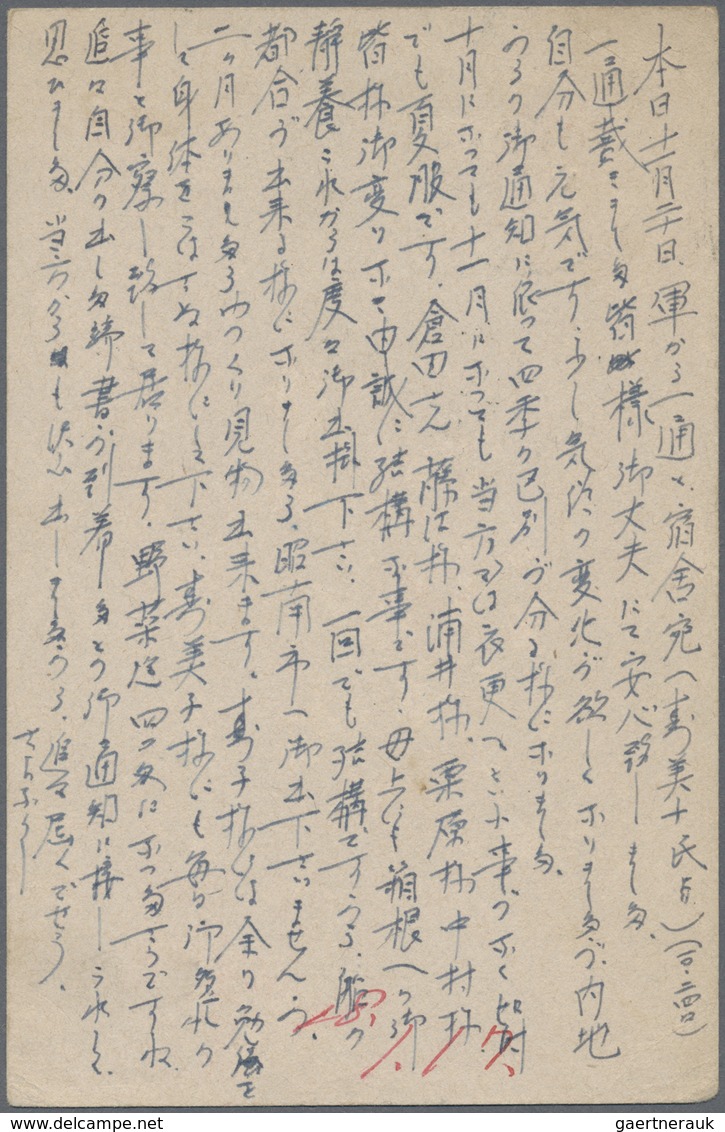 本日十一月二十日、軍から一通と、宿舎宛へ寿美子氏より
一通戴きました 皆様御丈夫にて安心致しました、
自分も元気です、少し気候の変化が欲しくなりましたが、内地
からの御通知に依って四季の区別が分る様になりました。
十月になっても十一月になっても当方では衣更へという事のなく
でも夏服です、倉田さん 藤江様、浦井様、栗原様 中村様
皆様御変りなく由誠に結構な事です、母上にも箱根への御
静養これからは度々御出掛下さい、一回でも結構ですから、
都合が出来る様になりましたら、昭南市へ御出下さいませんか、
二ヶ月ありましたらゆっくり見物出来ます、寿子様には余り勉強を
して身体をこはさぬ様にして下さい、寿美子様にも毎日御多忙の
事と御察し致して居ります、野菜迄四つ
追々自分の出した端書が到着したとの御通知に接しうれしく
思ひました、当方からも沢山出しましたから、追々届くでせう、
さようなら
gaertnerauk